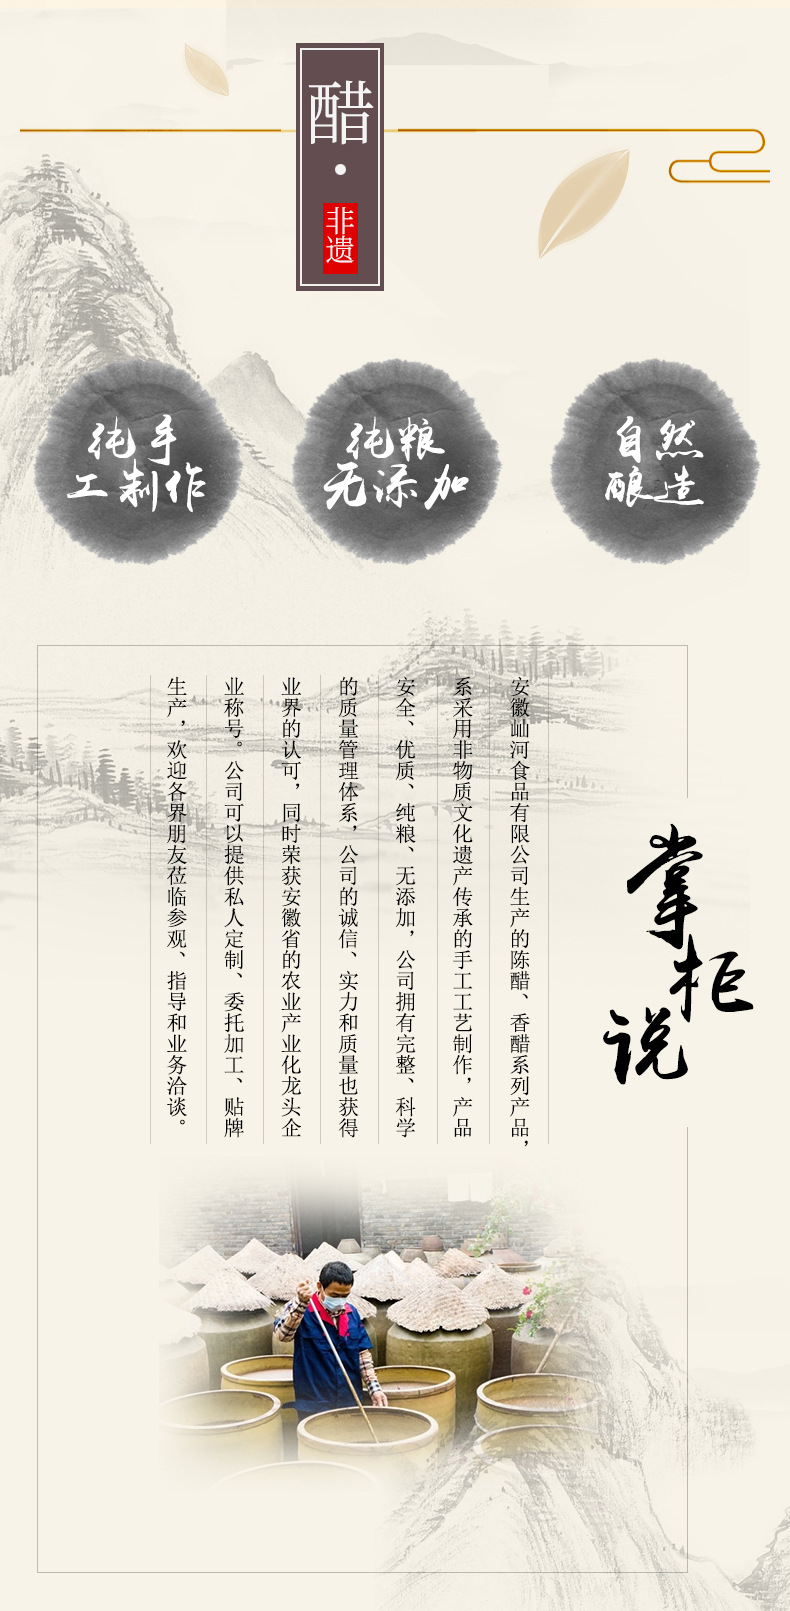 醋
·
非遗
纯手
工制作
纯粮
无添加
自然
酿造
掌柜说
安徽屾河食品有限公司生产的陈醋、香醋系列产品，
系采用非物质文化遗产传承的手工工艺制作，产品
安全、优质、纯粮、无添加，公司拥有完整、科学
的质量管理体系，公司的诚信、实力和质量也获得
业界的认可，同时荣获安徽省的农业产业化龙头企
业称号。公司可以提供私人定制、委托加工、贴牌
生产，欢迎各界朋友莅临参观、指导和业务洽谈。